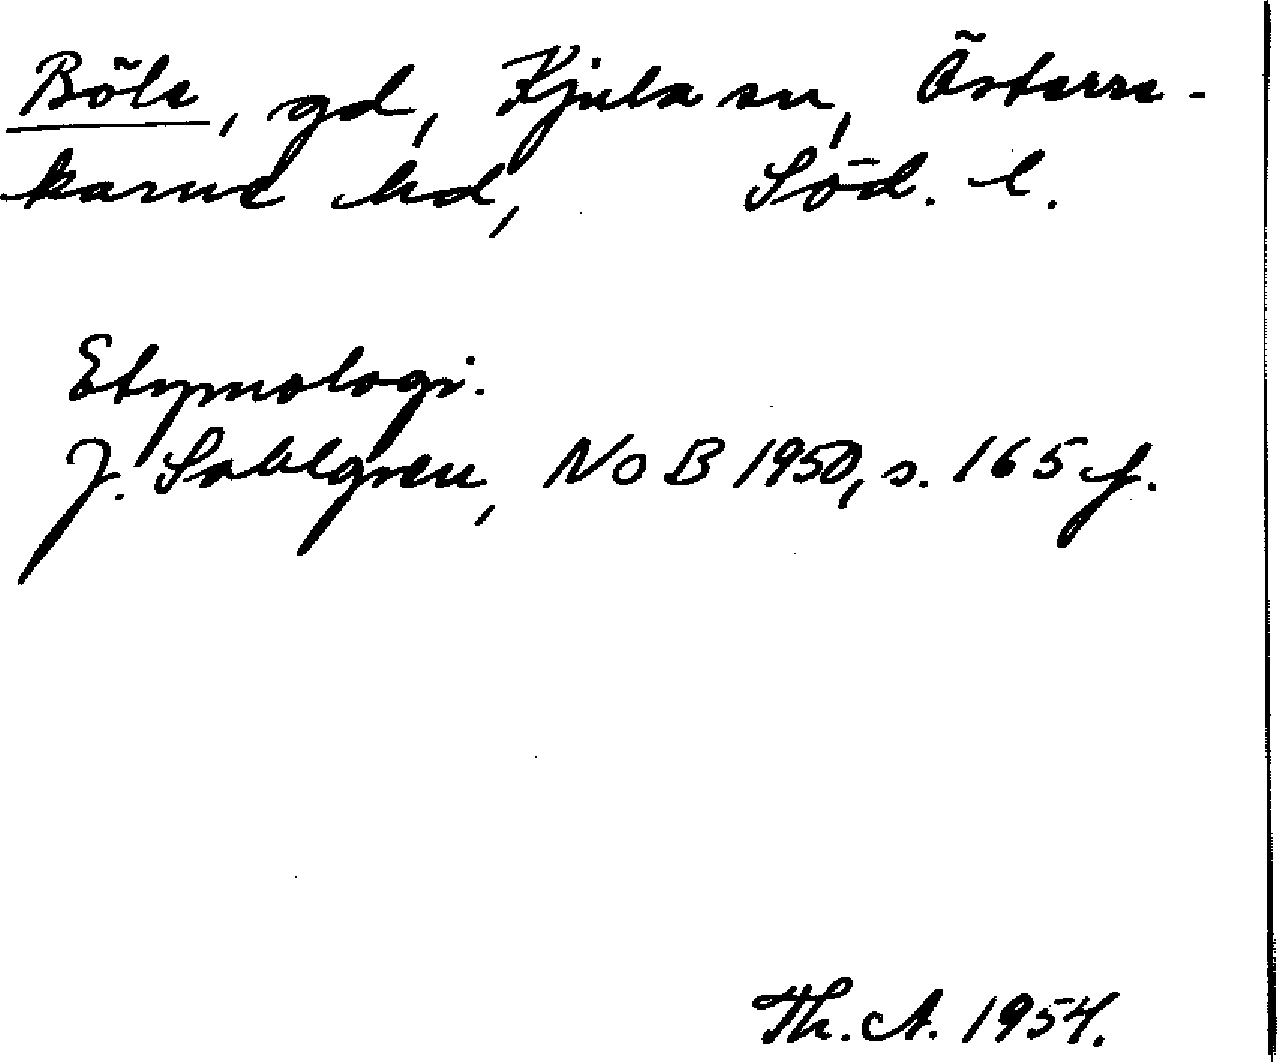 Böle, gd, Kjula sn, Österre-
karne hd, Söd. l.
Etymologi.
J. Sahlgren, NoB 1950, s. 165 f.
Th. A. 1954.